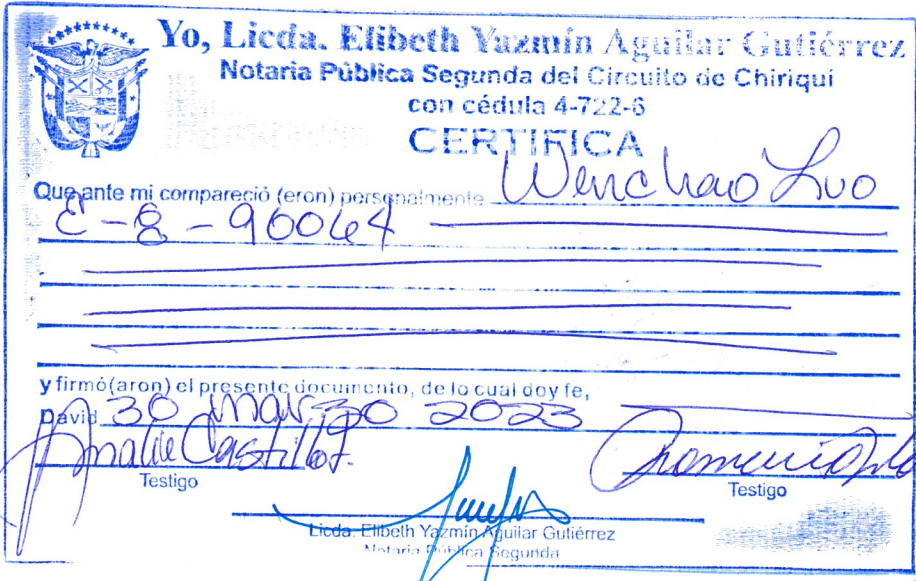 Yo, Licda. Elibeth Yazmín Aguilar Gutiérrez
Notaria Pública Segunda del Circuito de Chiriquí
con cédula 4-722-6
CERTIFICA
Que ante mi compareció (eron) personalmente Wenchao Luo
E-8-96064
y firmó(aron) el presente documento, de lo cual doy fe,
David 30 marzo 2023
Amalie Castillo
Testigo
Testigo
Licda. Elibeth Yazmín Aguilar Gutiérrez
Notaria Pública Segunda